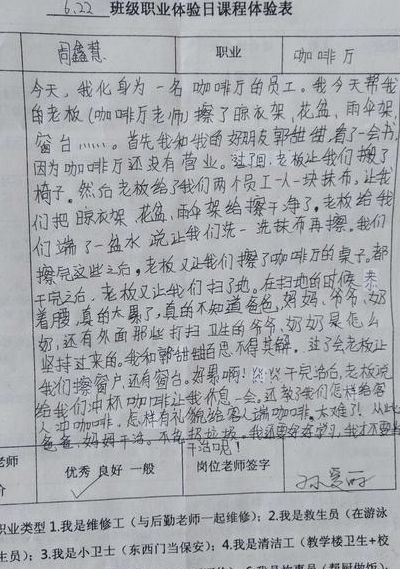 6.22 班级职业体验日课程体验表
周鑫慧 职业 咖啡厅
今天,我化身为一名咖啡厅的员工。我今天帮我
的老板(咖啡厅老师)擦了晾衣架、花盆、雨伞架、
窗台……。首先我和我的好朋友郭甜甜,看了一会书,
因为咖啡厅还没有营业。过了回,老板让我们搬了
椅子。然后老板给了我们两个员工一人一块抹布,让我
们把晾衣架、花盆、雨伞架给擦干净了。老板给我
们端了一盆水说让我们洗一洗抹布再擦。我们
擦完这些之后,老板又让我们擦了咖啡厅的桌子。都
干完之后,老板又让我们扫了地。在扫地的时候,
着腰,真的太累了,真的不知道爸爸、妈妈、爷爷、奶
奶,还有外面那些打扫卫生的爷爷、奶奶是怎么
坚持过来的。我和郭甜甜百思不得其解。过了会老板让
我们擦窗户,还有窗台。好累啊!干完活后,老板说
给我们冲杯咖啡让我休息一会。还教我们怎样给客
人冲咖啡,怎样有礼貌给客人端咖啡。太难了!从此
爸爸、妈妈干活。不乱扔垃圾。我还要好好学习,我才不要
干活呢!
老师 优秀 良好 一般 岗位老师签字
分
职业类型 1.我是维修工(与后勤老师一起维修);2.我是救生员(在游泳
生员);3.我是小卫士(东西门当保安);4.我是清洁工(教学楼卫生+校